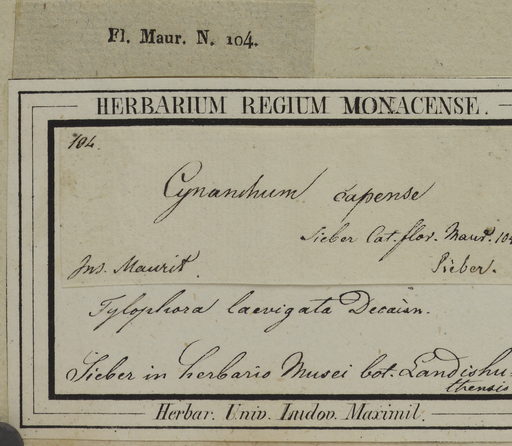 Fl. Maur. N. 104.
HERBARIUM REGIUM MONACENSE.
104.
Cynanchum capense
Sieber Cat. flor. Maur. 104
Ins. Maurit.
Sieber.
Tylophora laevigata Decaisn.
Sieber in herbario Musei bot. Landishu-
thensis
Herbar. Univ. Ludov. Maximil.